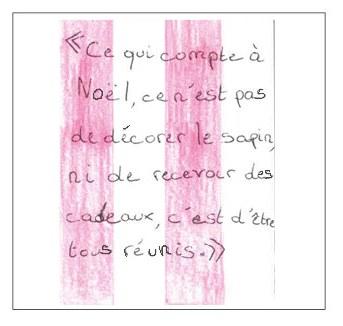 « Ce qui compte à
Noël, ce n'est pas
de décorer le sapin,
ni de recevoir des
cadeaux, c'est d'être
tous réunis. »